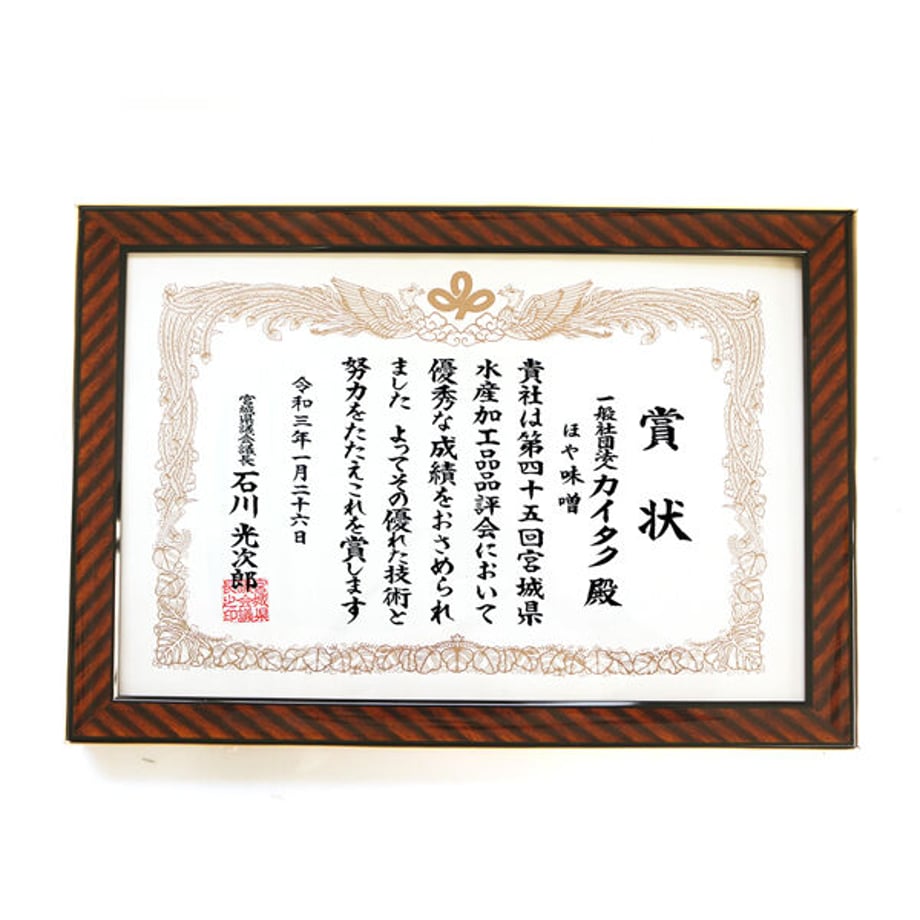 賞状
一般社団法人カイタク殿
ほや味噌
貴社は第四十五回宮城県
水産加工品品評会において
優秀な成績をおさめられ
ました よってその優れた技術と
努力をたたえこれを賞します
令和三年一月二十六日
宮城県議会議長 石川光次郎
宮城県
議会議
長之印